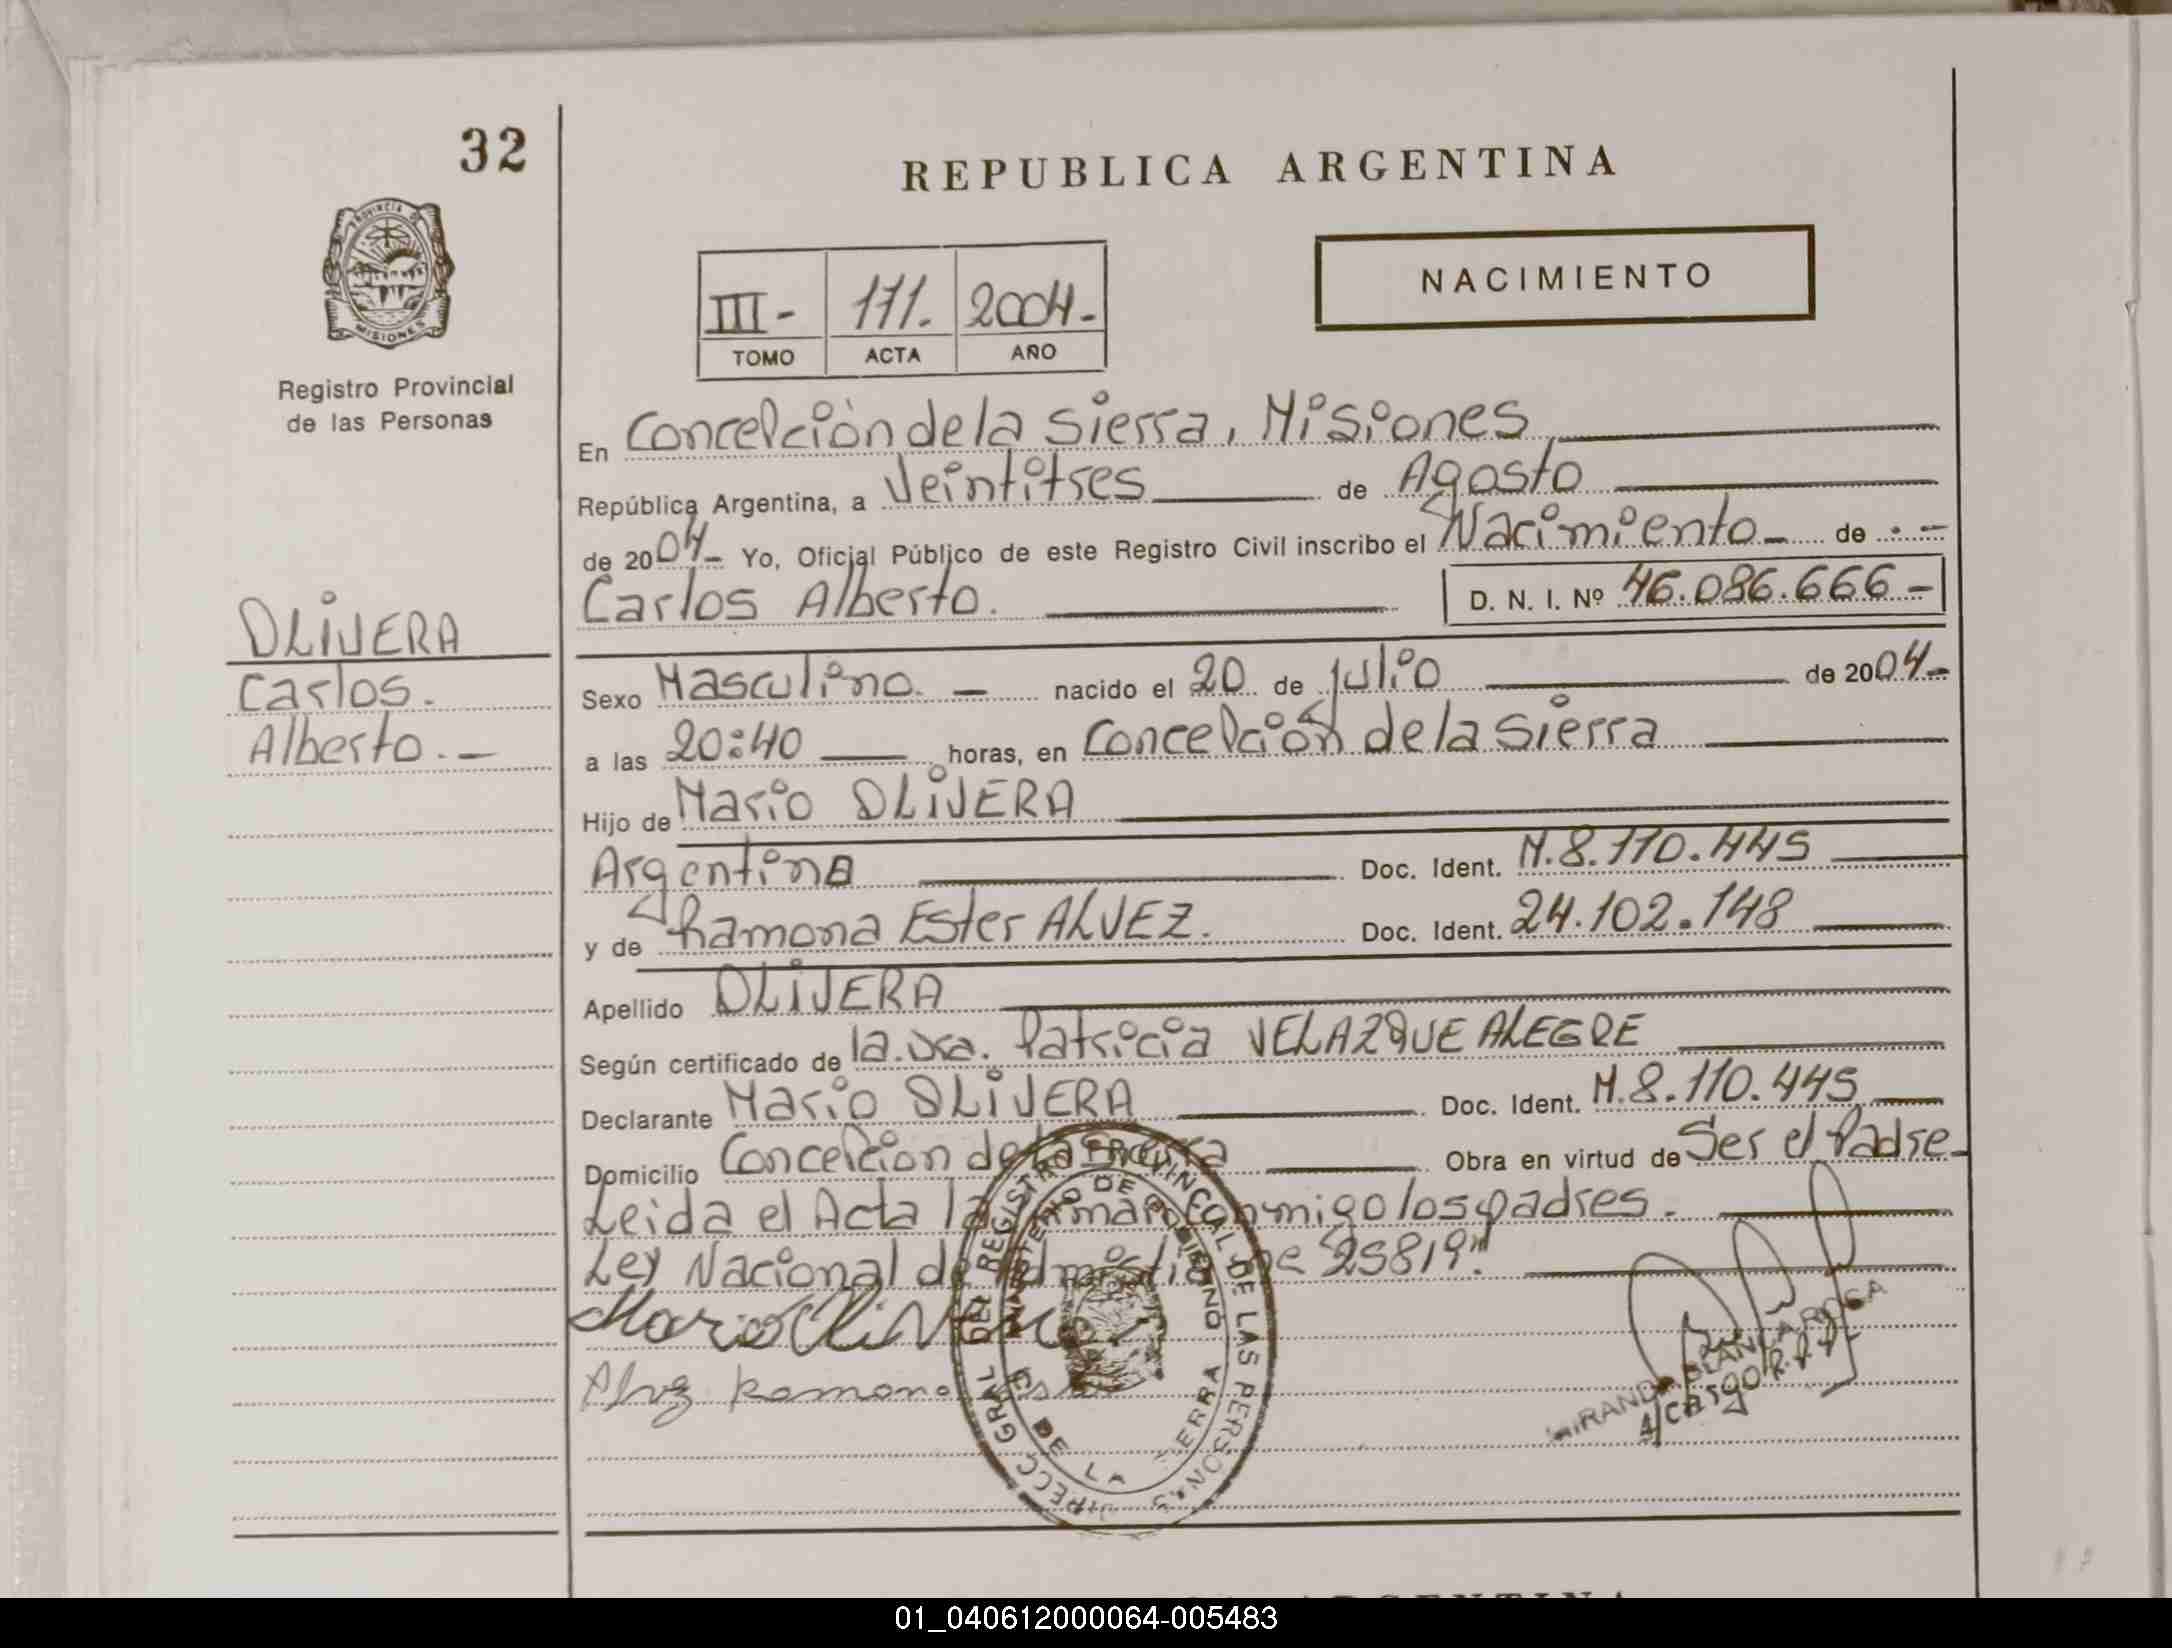 32
REPUBLICA ARGENTINA
PROVINCIA DE MISIONES
III - 171. 2004.-
TOMO ACTA AÑO
NACIMIENTO
Registro Provincial
de las Personas
En Concepción de la Sierra, Misiones
República Argentina, a Veintitres de Agosto
de 2004.- Yo, Oficial Público de este Registro Civil inscribo el Nacimiento - de . -
Carlos Alberto. D. N. I. Nº 46.086.666 -
OLIVERA
Carlos.
Alberto. -
Sexo Masculino. - nacido el 20 de julio de 2004.-
a las 20:40 horas, en Concepción de la Sierra
Hijo de Mario OLIVERA
Argentina Doc. Ident. M.8.110.445
y de Ramona Ester ALVEZ. Doc. Ident. 24.102.148
Apellido OLIVERA
Según certificado de la Dra. Patricia VELAZQUE ALEGRE
Declarante Mario OLIVERA Doc. Ident. M.8.110.445
Domicilio Concepcion de la Sierra Obra en virtud de Ser el Padre -
Leida el Acta la firman conmigo los padres.
Ley Nacional de Admistia Nº 25819"
Mario Olivera
Alvez Ramona
DIRECC. GRAL. DEL REGISTRO PROVINCIAL DE LAS PERSONAS
MINISTERIO DE GOBIERNO
DE LA SIERRA
MIRANDA BLANCA ROSA
A/cargo R.P.P.
01_040612000064-005483